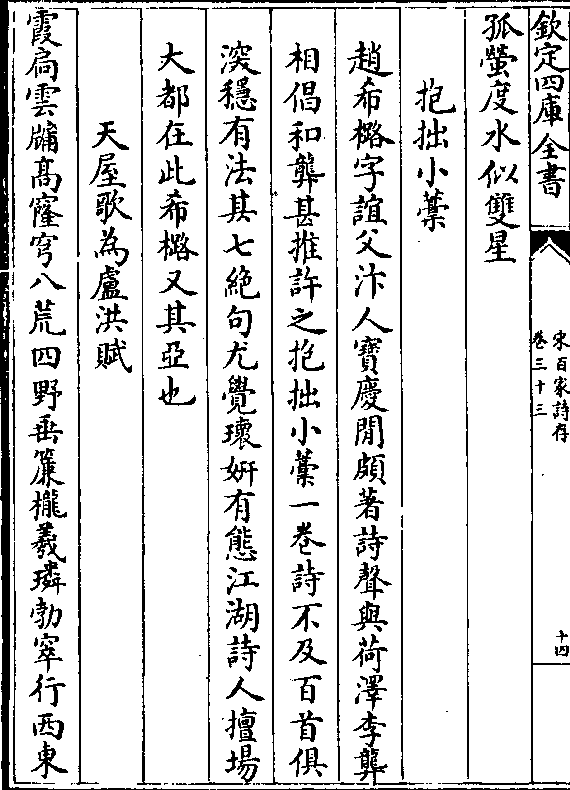 欽定四庫全書
宋百家詩存
卷三十三
十四
孤螢度水似雙星
抱拙小藁
趙希㯝字誼父汴人寶慶間頗著詩聲與荷澤李龏
相倡和龏甚推許之抱拙小藁一卷詩不及百首俱
深穩有法其七絶句尤覺瓌妍有態江湖詩人擅場
大都在此希㯝又其亞也
天屋歌為盧洪賦
霞扃雲牖高窿穹八荒四野垂簾櫳羲璘勃窣行西東